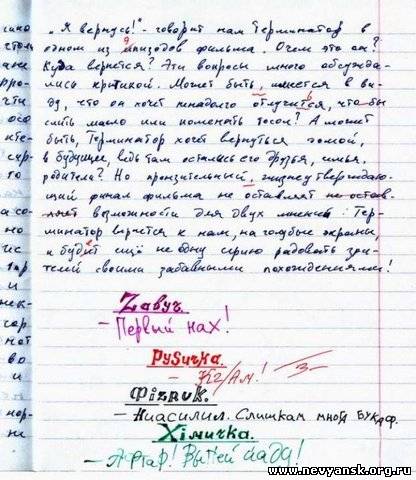 „Я вернусь!"- говорит нам Терминатор в
одном из эпизодов фильма. О чем это он?
Куда вернется? Эти вопросы много обсужда-
лись критикой. Может быть, имеется в ви-
ду, что он хочет ненадолго отлучится, что бы
слить масло или поменять тосол? А может
быть, Терминатор хочет вернуться домой,
в будущее, ведь там остались его друзья, семья,
родители? Но пронзительный, жизнеутверждаю-
щий финал фильма не оставляет не остав-
ляет возможности для двух мнений: Тер-
минатор вернется к нам, на голубые экраны,
и будет ещё не одну серию радовать зри-
телей своими забавными похождениями!
Завуч.
- Первый нах!
РуSичка.
- КГ/Ам! 3-
Фіzрик.
- Ниасилил. Слишкам многа букаф.
Хімичка.
- Афтар! Выпей йаду!
www.nevyansk.org.ru